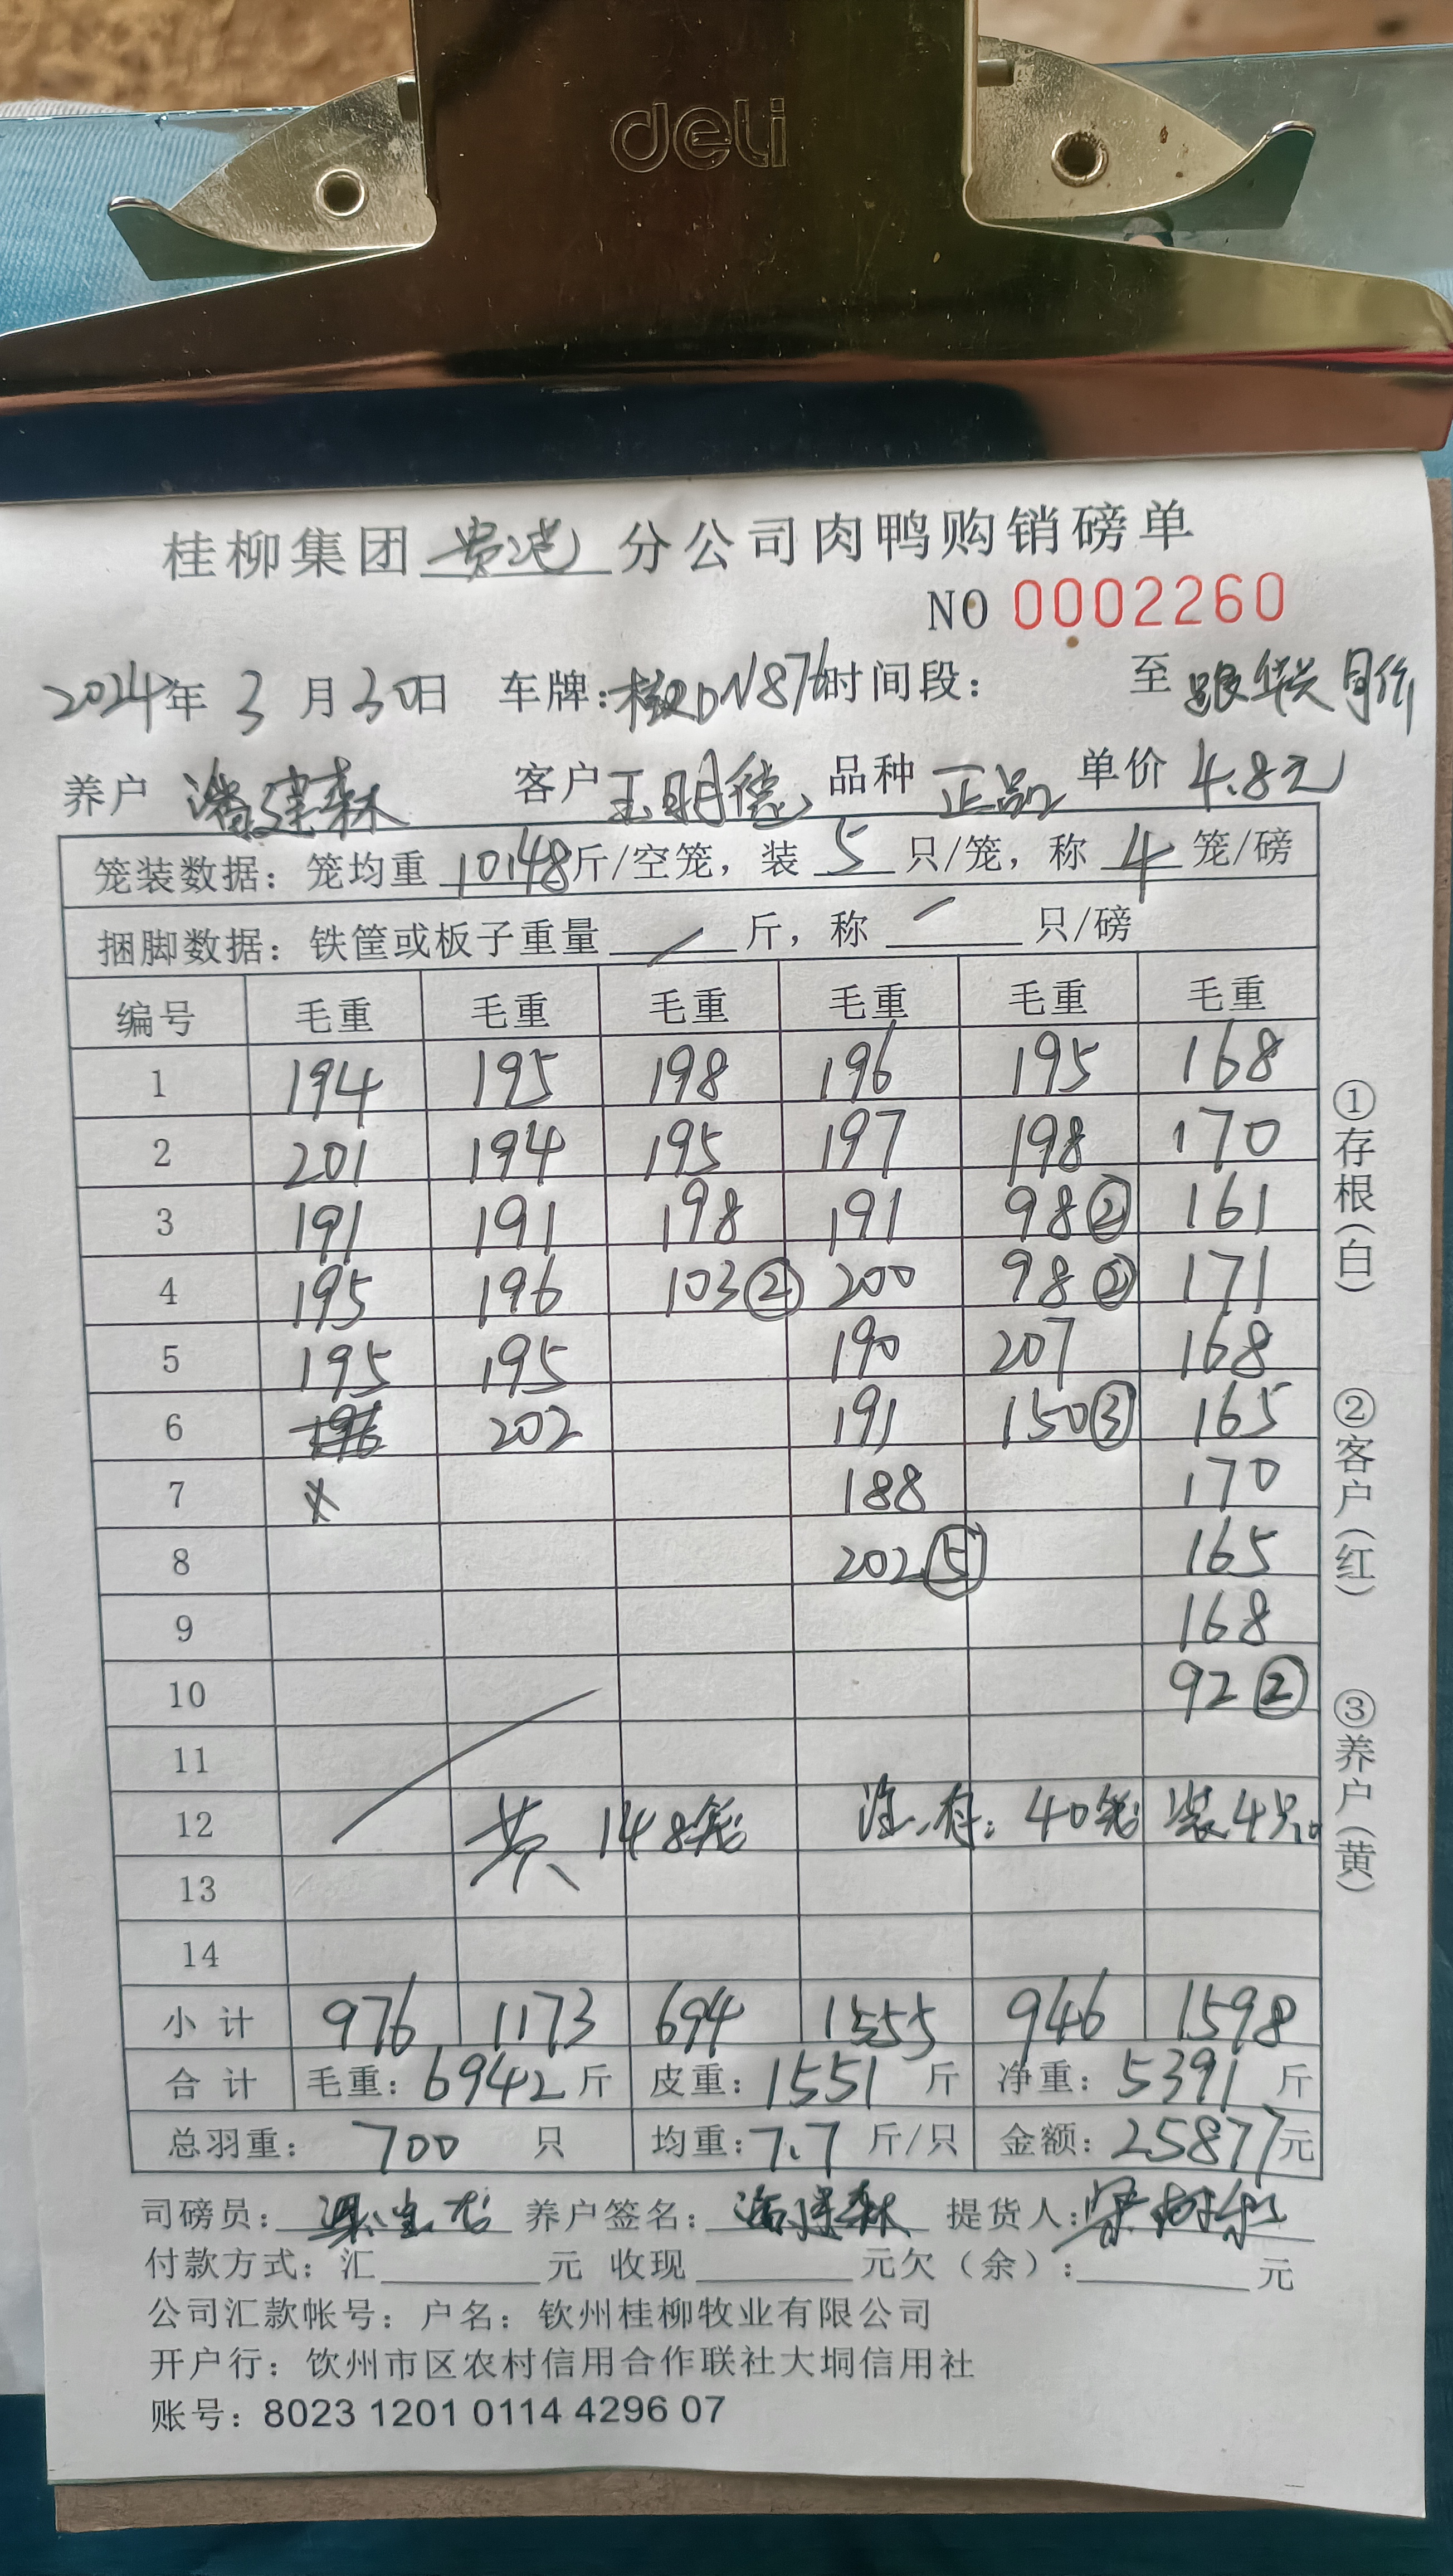 deli
桂柳集团 贵港 分公司肉鸭购销磅单
NO 0002260
2024年 3 月 30日 车牌:桂DN876 时间段: 至 跟华兴同价
养户 潘建森 客户 王明德 品种 正品 单价 4.8元
笼装数据: 笼均重 10.48斤/空笼, 装 5 只/笼, 称 4 笼/磅
捆脚数据: 铁筐或板子重量 / 斤, 称 / 只/磅
编号 毛重 毛重 毛重 毛重 毛重 毛重
1 194 195 198 196 195 168
2 201 194 195 197 198 170
3 191 191 198 191 98② 161
4 195 196 103② 200 98② 171
5 195 195 190 207 168
6 196 202 191 150③ 165
7 188 170
8 202⑤ 165
9 168
10 92②
11
12 共 148笼 注.有: 40笼 装4只。
13
14
小计 976 1173 694 1555 946 1598
合计 毛重: 6942 斤 皮重: 1551 斤 净重: 5391 斤
总羽重: 700 只 均重: 7.7 斤/只 金额: 25877元
司磅员: 养户签名: 潘建森 提货人:
付款方式: 汇 元 收现 元欠(余): 元
公司汇款帐号: 户名: 钦州桂柳牧业有限公司
开户行: 钦州市区农村信用合作联社大垌信用社
账号: 8023 1201 0114 4296 07
①存根(白)
②客户(红)
③养户(黄)